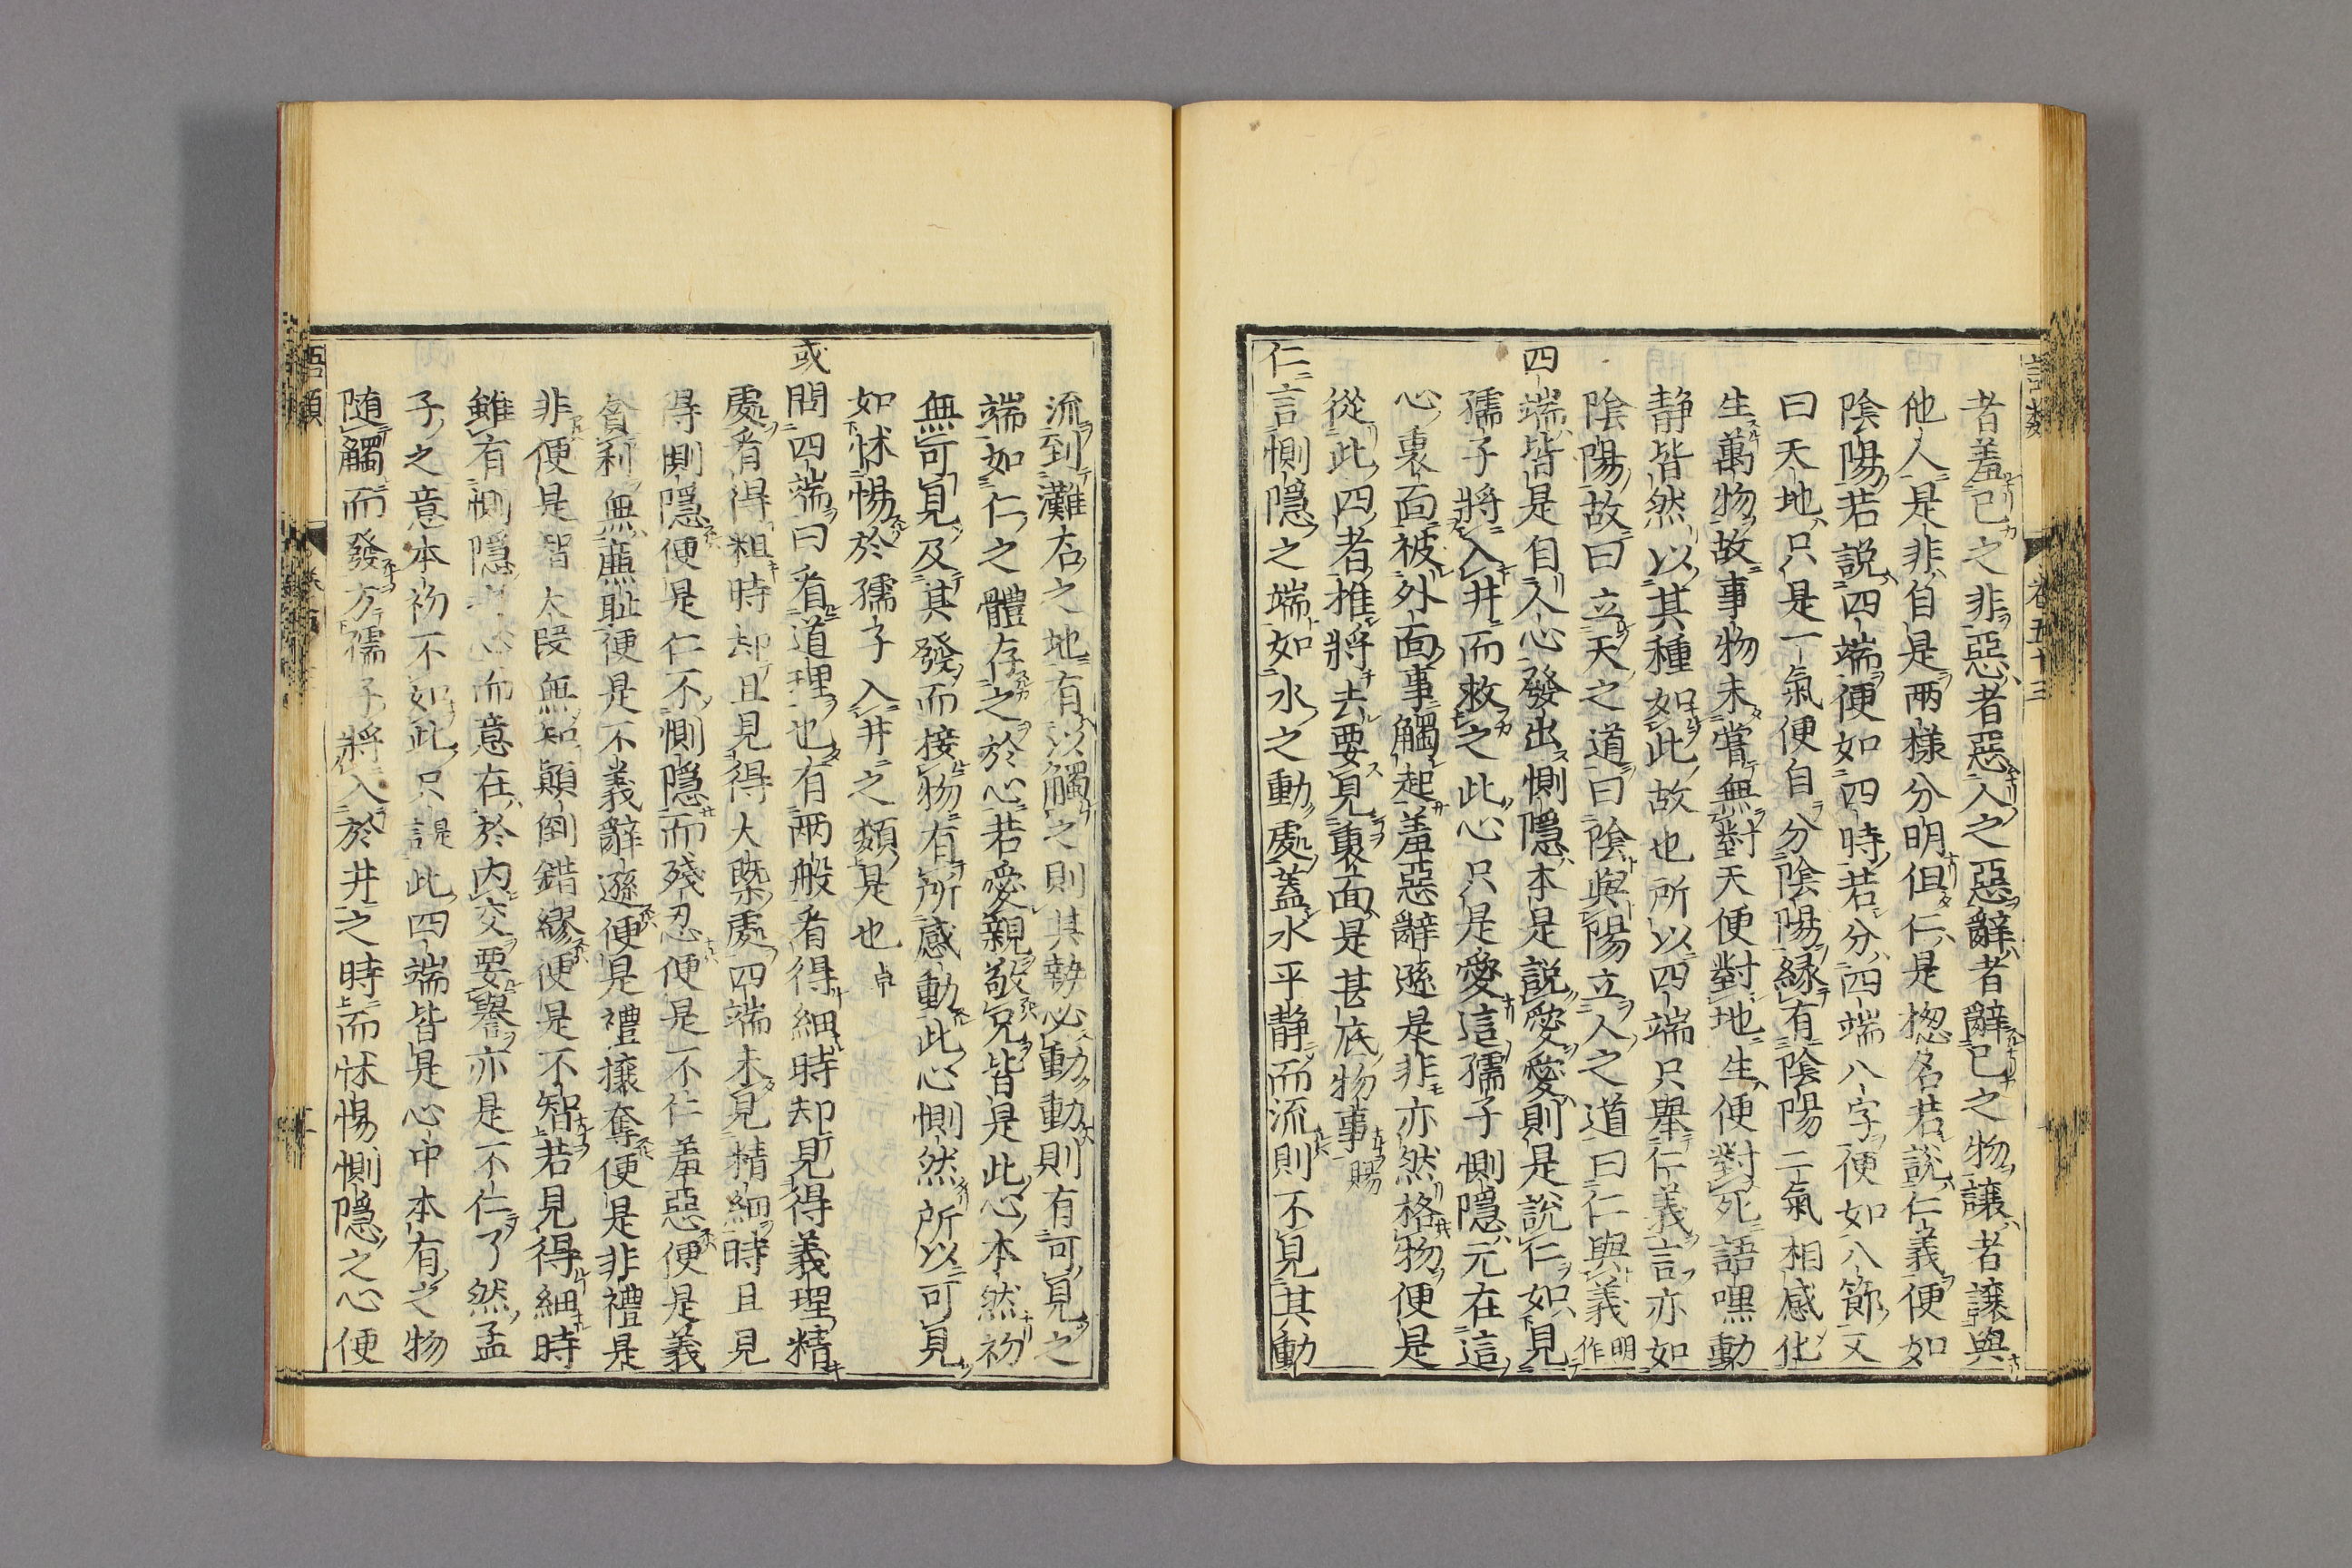 語類 卷五十三
者羞己之非惡者惡人之惡辭者辭己之物讓者讓與
他人是非自是兩樣分明但仁是揔名若說仁義便如
陰陽若説四端便如四時若分四端八字便如八節又
曰天地只是一氣便自分陰陽縁有陰陽二氣相感化
生萬物故事物未嘗無對天便對地生便對死語嘿動
静皆然以其種如此故也所以四端只舉仁義言亦如
陰陽故曰立天之道曰陰與陽立人之道曰仁與義 明作
四端皆是自人心發出惻隱本是説愛愛則是說仁如見
孺子將入井而救之此心只是愛這孺子惻隱元在這
心裏面被外面事觸起羞惡辭遜是非亦然格物便是
從此四者推將去要見裏面是甚底物事 賜
仁言惻隱之端如水之動處蓋水平静而流則不見其動
流到灘石之地有以觸之則其勢必動動則有可見之
端如仁之體存之於心若愛親敬兄皆是此心本然初
無可見及其發而接物有所感動此心惻然所以可見
如怵惕於孺子入井之類是也 卓
或問四端曰看道理也有兩般看得細時却見得義理精
處看得粗時却且見得大槩處四端未見精細時且見
得惻隱便是仁不惻隱而殘忍便是不仁羞惡便是義
貪利無廉耻便是不義辭遜便是禮攘奪便是非禮是
非便是智大段無知顛倒錯繆便是不智若見得細時
雖有惻隱之心而意在於内交要譽亦是不仁了然孟
子之意本初不如此只是此四端皆是心中本有之物
随觸而發方孺子將入於井之時而怵惕惻隱之心便
語類